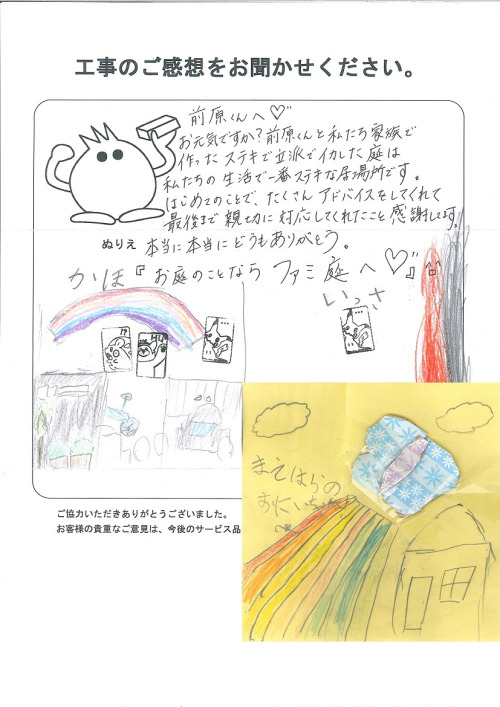 工事のご感想をお聞かせください。
前原くんへ♡
お元気ですか?前原くんと私たち家族で
作ったステキで立派でイカした庭は
私たちの生活で一番ステキな居場所です。
はじめてのことで、たくさんアドバイスをしてくれて
最後まで親切に対応してくれたこと感謝します。
ぬりえ 本当に本当にどうもありがとう。
かほ『お庭のことなら ファミ庭へ♡』
いっさ
!?
まえはらの
おにいちゃん
へ
ご協力いただきありがとうございました。
お客様の貴重なご意見は、今後のサービス品